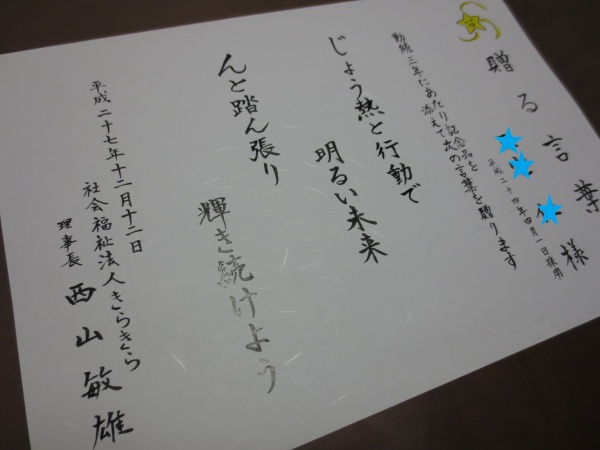 贈る言葉
様
平成二十四年四月一日採用
勤続三年にあたり記念品を
添えて次の言葉を贈ります
じょう熱と行動で
明るい未来
んと踏ん張り
輝き続けよう
平成二十七年十二月十二日
社会福祉法人きらきら
理事長 西山敏雄